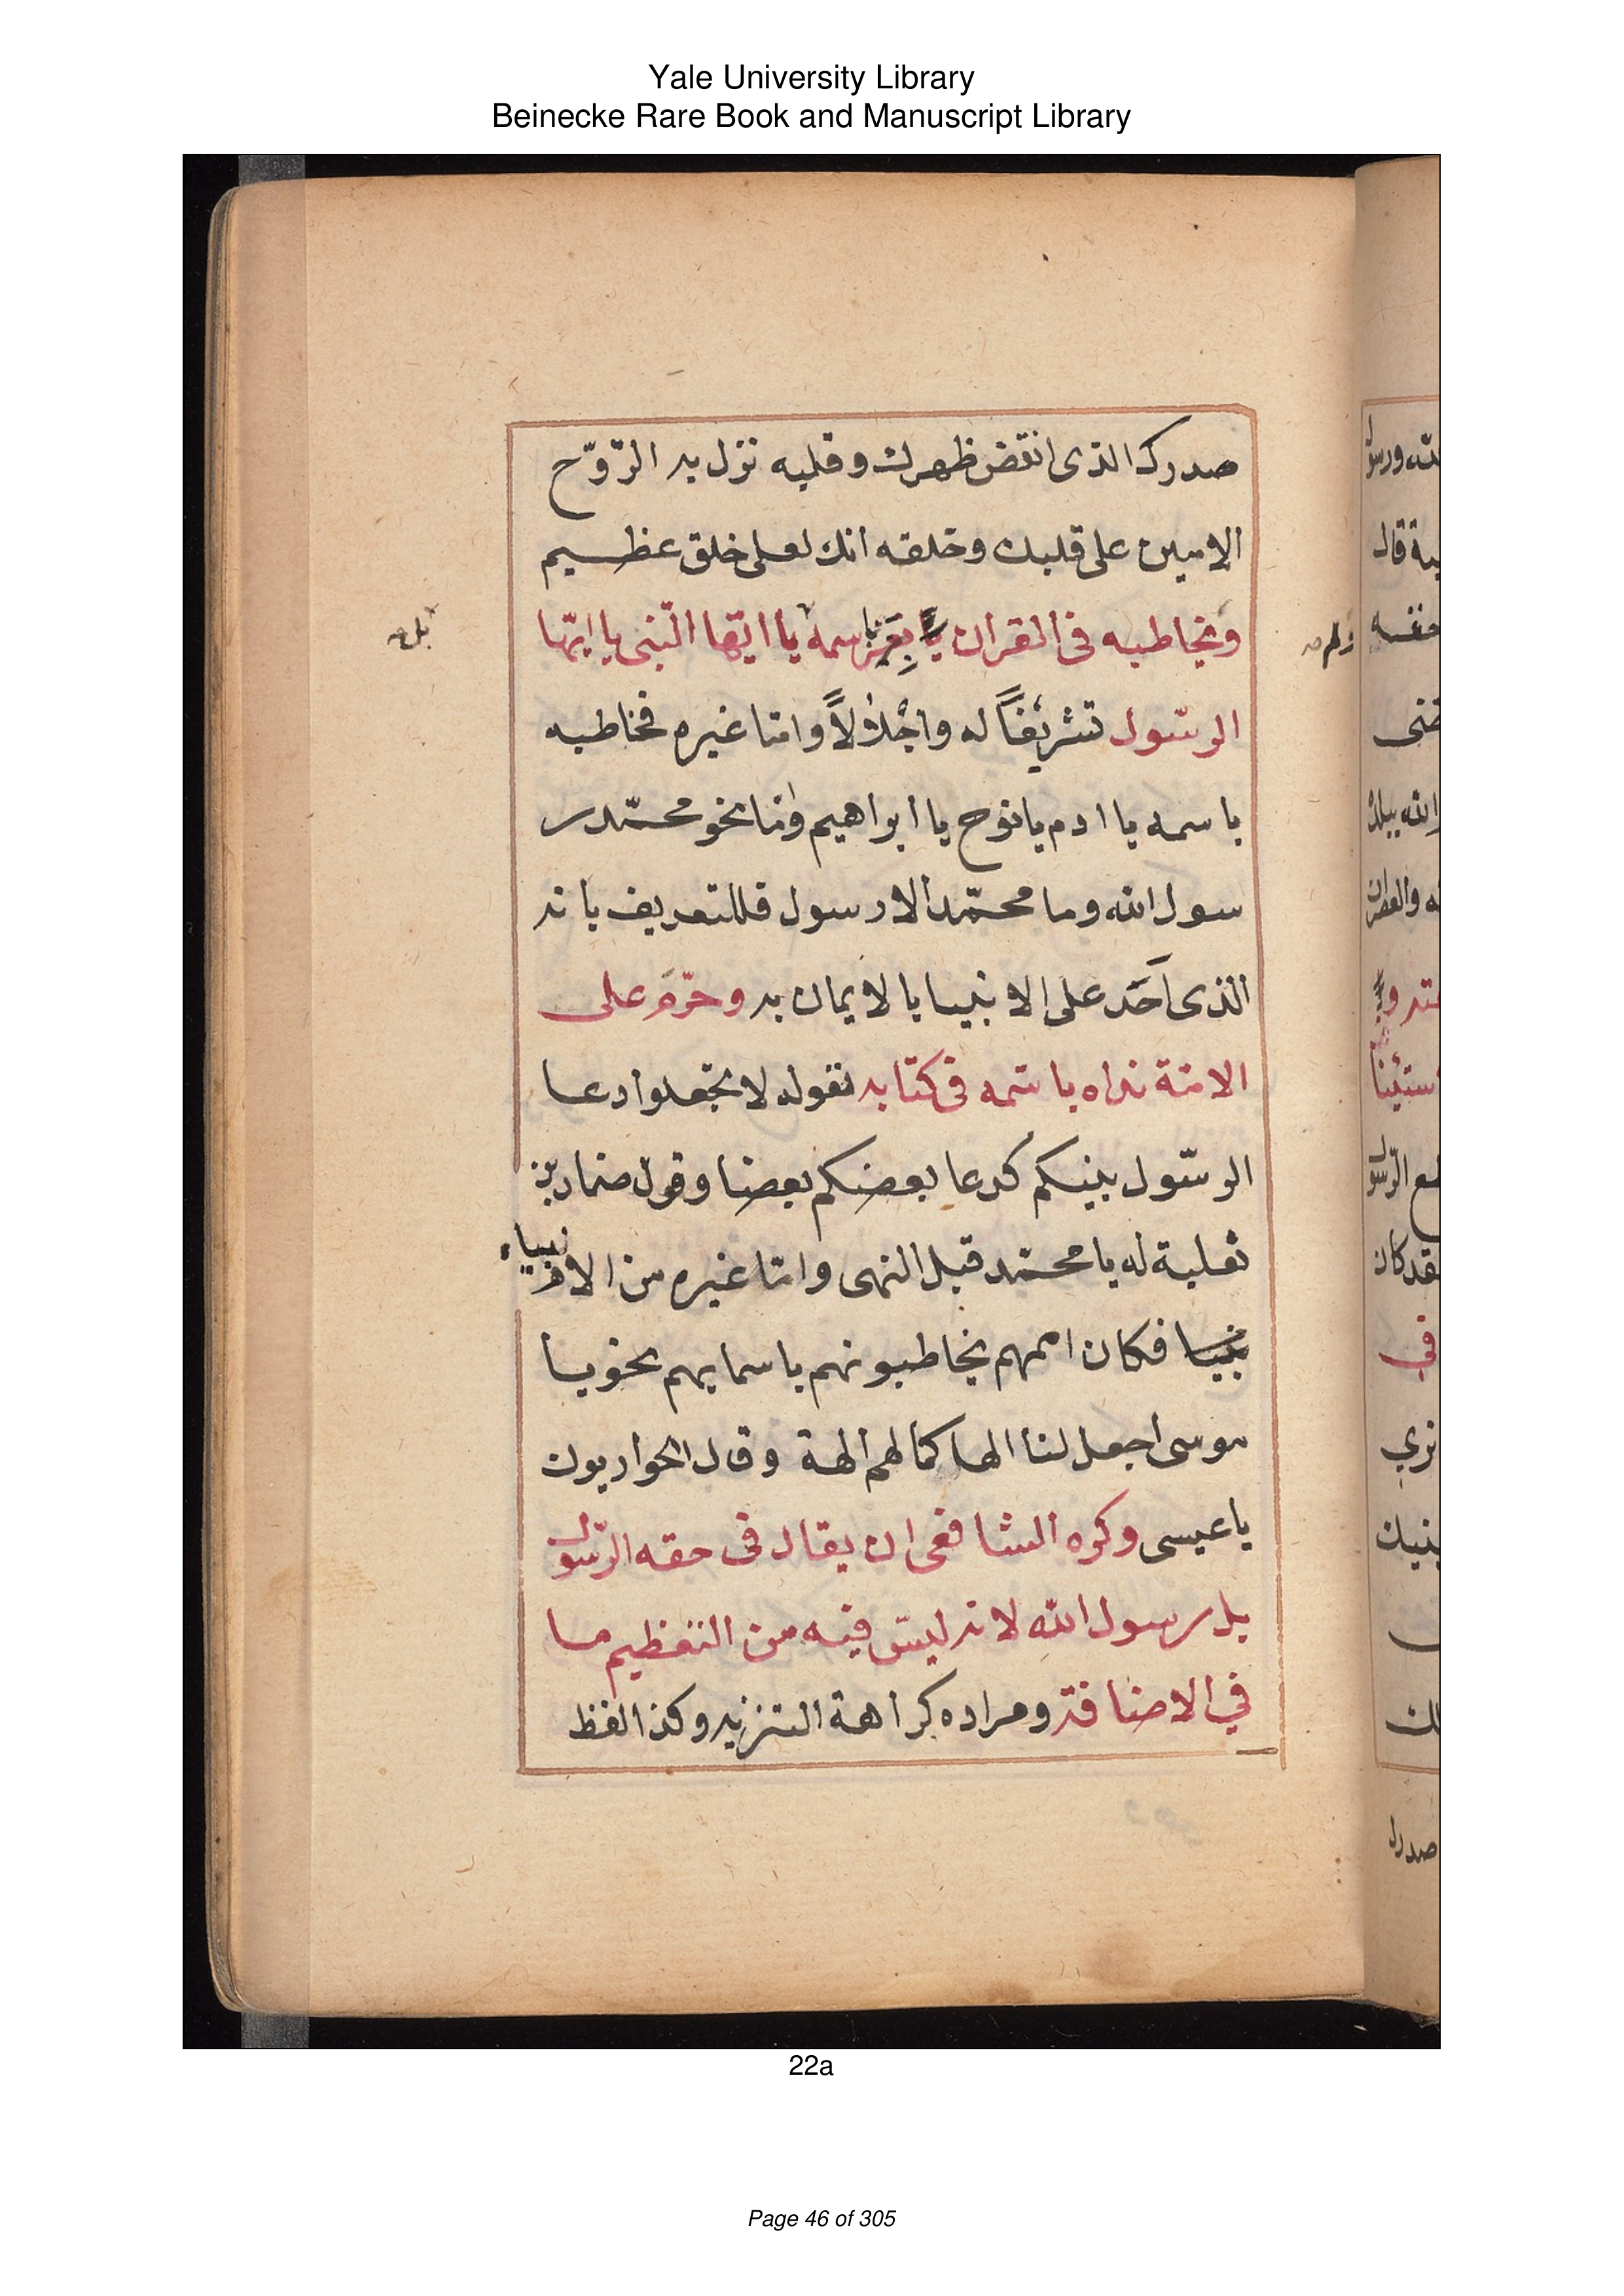 Yale University Library
Beinecke Rare Book and Manuscript Library
صدرك الذى انقض ظهرك وقلبه نزل به الرّوّح
الامين على قلبك وخلقه انك لعلى خلق عظيم
ويخاطبه فى القران بغير اسمه يا ايّها النّبى يا ايّها
الرسّول تشريفاً له واجْلالاً وامّا غيره فخاطبه
باسمه يا ادم يا نوح يا ابراهيم وامّا نحو محمّد ر
سول الله وما محمّد الا رسول فللتعريف بانه
الذى اخذ على الانبيا بالايمان به وحرّم على
الامّة نداه باسمه فى كتابه بقوله لا تجعلوا دعا
الرسّول بينكم كدعا بعضكم بعضا وقول ضماد بن
ثعلبة له يا محمّد قبل النهى وامّا غيره من الانبياء
فكان اممهم يخاطبونهم باسمايهم نحو يا
موسى اجعل لنا الها كما لهم الهة وقال الحواريون
يا عيسى وكره الشافعى ان يقال فى حقه الرّسول
بل رسول الله لانه ليس فيه من التعظيم ما
في الاضافة ومراده كراهة التنزيه وكذا لفظ
22a
Page 46 of 305